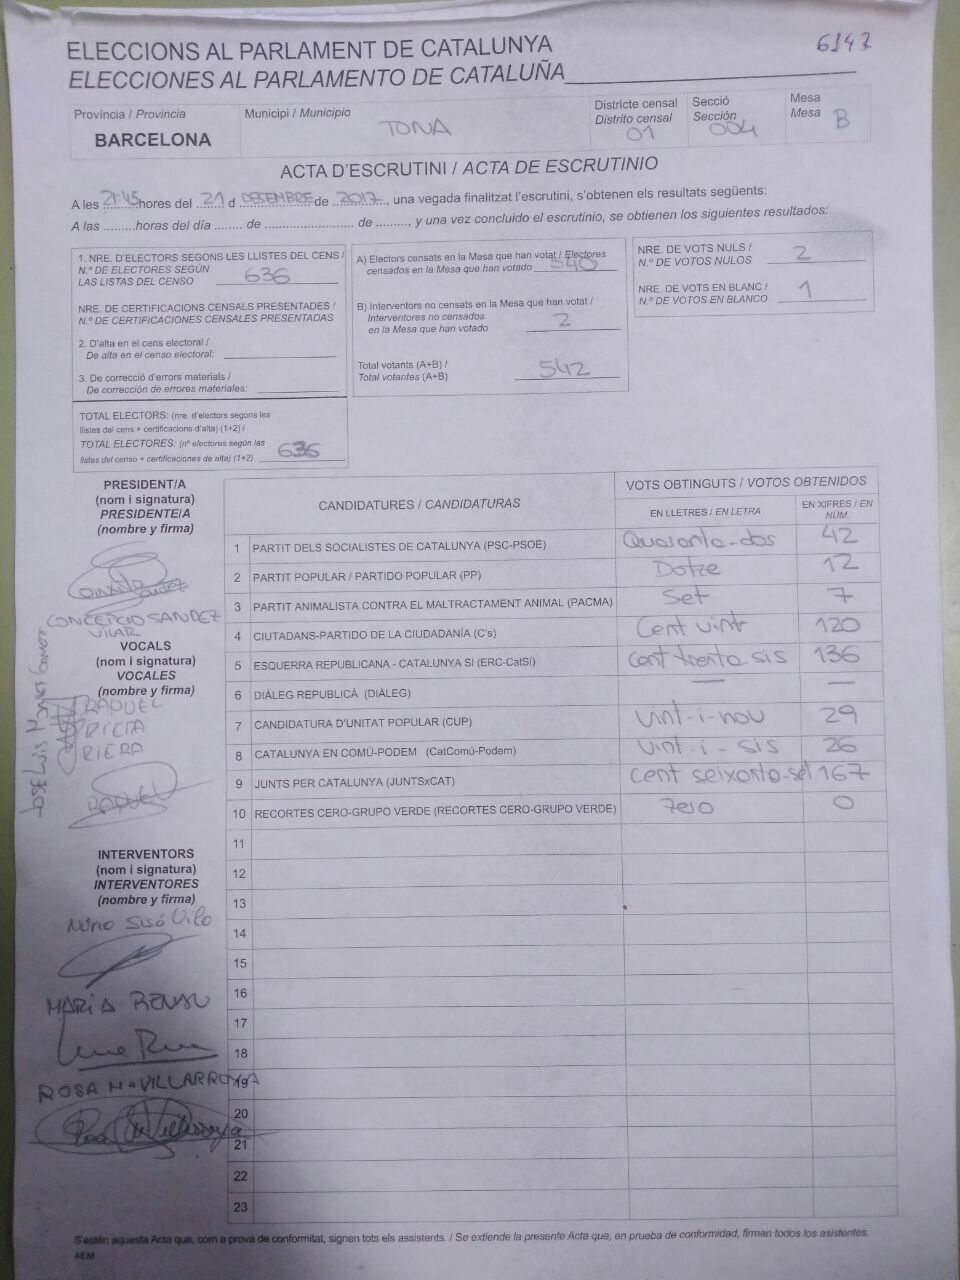 6147
ELECCIONS AL PARLAMENT DE CATALUNYA
ELECCIONES AL PARLAMENTO DE CATALUÑA
Província / Provincia
BARCELONA
Municipi / Municipio
TONA
Districte censal
Distrito censal
01
Secció
Sección
004
Mesa
Mesa
B
ACTA D'ESCRUTINI / ACTA DE ESCRUTINIO
A les 21:45 hores del 21 d DESEMBRE de 2017, una vegada finalitzat l'escrutini, s'obtenen els resultats següents:
A las .........horas del día ........ de ......................... de ........., y una vez concluido el escrutinio, se obtienen los siguientes resultados:
1. NRE. D'ELECTORS SEGONS LES LLISTES DEL CENS /
N.º DE ELECTORES SEGÚN
LAS LISTAS DEL CENSO 636
NRE. DE CERTIFICACIONS CENSALS PRESENTADES /
N.º DE CERTIFICACIONES CENSALES PRESENTADAS
2. D'alta en el cens electoral /
De alta en el censo electoral:
3. De correcció d'errors materials /
De corrección de errores materiales:
TOTAL ELECTORS: (nre. d'electors segons les
llistes del cens + certificacions d'alta) (1+2) /
TOTAL ELECTORES: (nº electores según las
listas del censo + certificaciones de alta) (1+2) 636
A) Electors censats en la Mesa que han votat / Electores
censados en la Mesa que han votado 540
B) Interventors no censats en la Mesa que han votat /
Interventores no censados
en la Mesa que han votado 2
Total votants (A+B) /
Total votantes (A+B) 542
NRE. DE VOTS NULS /
N.º DE VOTOS NULOS 2
NRE. DE VOTS EN BLANC /
N.º DE VOTOS EN BLANCO 1
PRESIDENT/A
(nom i signatura)
PRESIDENTE/A
(nombre y firma)
CONCEPCIO SANDEZ
VILAR
VOCALS
(nom i signatura)
VOCALES
(nombre y firma)
JOSE LUIS
RAQUEL
RIERA
RAQUEL
INTERVENTORS
(nom i signatura)
INTERVENTORES
(nombre y firma)
Núria Sisó Vila
MARIA
ROSA Mª VILLARROYA
CANDIDATURES / CANDIDATURAS
VOTS OBTINGUTS / VOTOS OBTENIDOS
EN LLETRES / EN LETRA
EN XIFRES / EN
NÚM.
1 PARTIT DELS SOCIALISTES DE CATALUNYA (PSC-PSOE) Quaranta-dos 42
2 PARTIT POPULAR / PARTIDO POPULAR (PP) Dotze 12
3 PARTIT ANIMALISTA CONTRA EL MALTRACTAMENT ANIMAL (PACMA) Set 7
4 CIUTADANS-PARTIDO DE LA CIUDADANÍA (C's) Cent vint 120
5 ESQUERRA REPUBLICANA - CATALUNYA SÍ (ERC-CatSí) Cent trenta sis 136
6 DIÀLEG REPUBLICÀ (DIÀLEG) — —
7 CANDIDATURA D'UNITAT POPULAR (CUP) Vint-i-nou 29
8 CATALUNYA EN COMÚ-PODEM (CatComú-Podem) Vint-i-sis 26
9 JUNTS PER CATALUNYA (JUNTSxCAT) Cent seixanta-set 167
10 RECORTES CERO-GRUPO VERDE (RECORTES CERO-GRUPO VERDE) Zero 0
11
12
13
14
15
16
17
18
19
20
21
22
23
S'estén aquesta Acta que, com a prova de conformitat, signen tots els assistents. / Se extiende la presente Acta que, en prueba de conformidad, firman todos los asistentes.
AEM